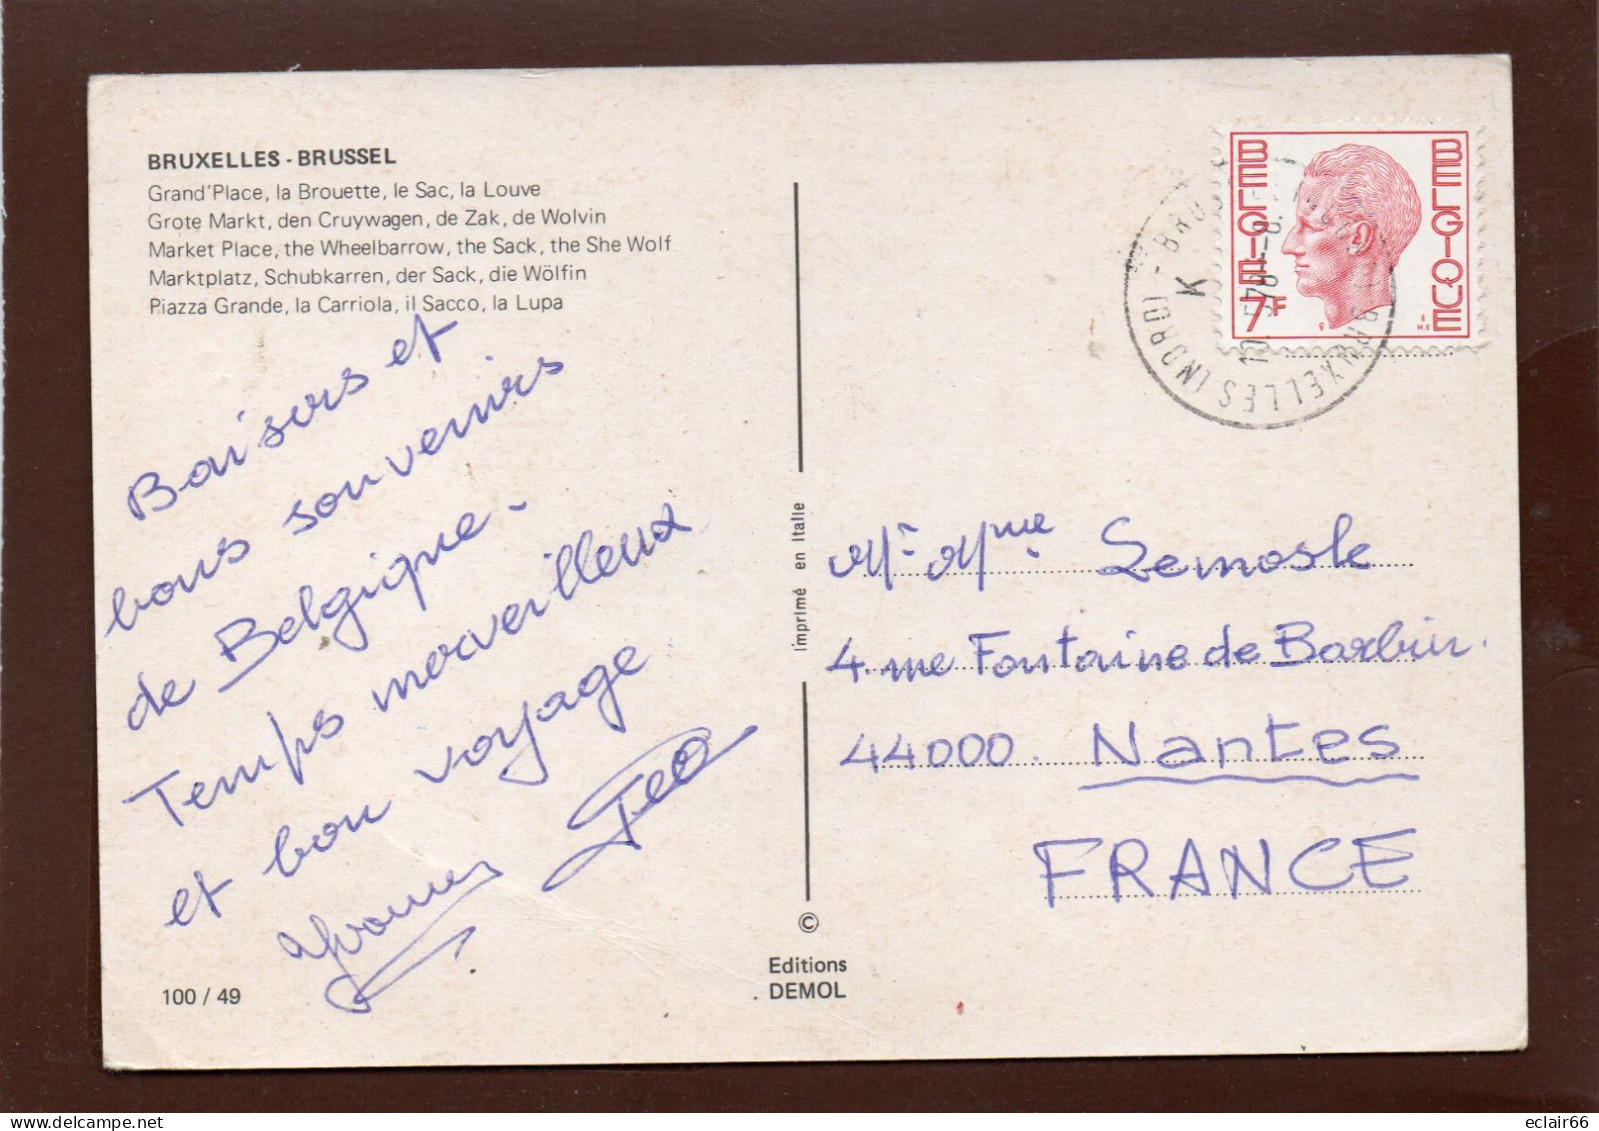 BRUXELLES - BRUSSEL
Grand'Place, la Brouette, le Sac, la Louve
Grote Markt, den Cruywagen, de Zak, de Wolvin
Market Place, the Wheelbarrow, the Sack, the She Wolf
Marktplatz, Schubkarren, der Sack, die Wölfin
Piazza Grande, la Carriola, il Sacco, la Lupa
Baisers et
bons souvenirs
de Belgique -
Temps merveilleux
et bon voyage
100 / 49
Imprimé en Italie
©
Editions
DEMOL
BELGIE
BELGIQUE
7F
BRUXELLES (NORD)
K
Mr Mme Lemosle
4 rue Fontaine de Barbin.
44000. Nantes
FRANCE
delcampe.net
eclair66